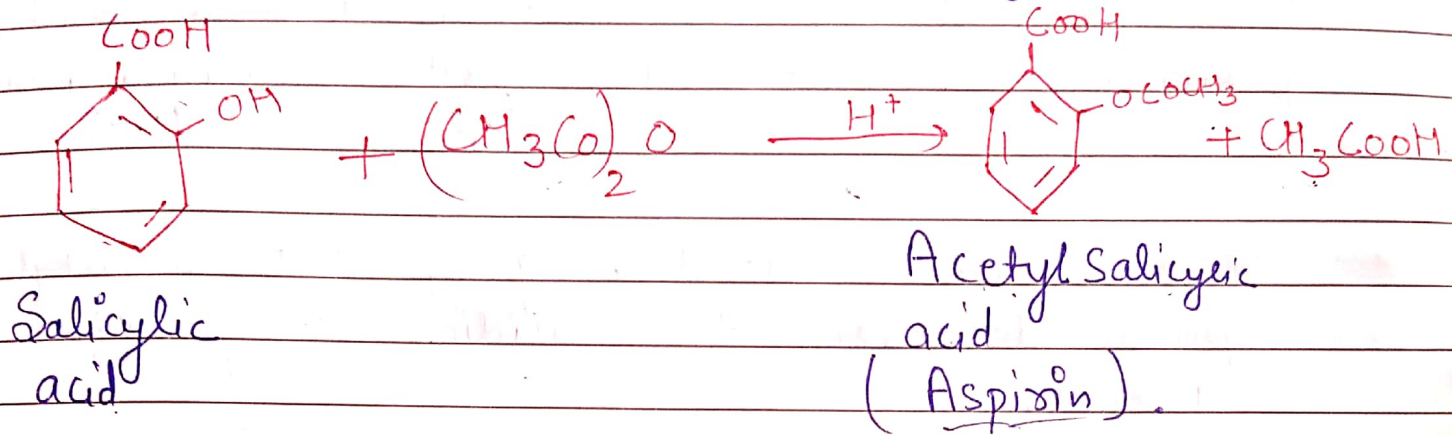 COOH
OH
+ (CH3CO)2 O
H+
COOH
OCOCH3
+ CH3COOH
Salicylic
acid
Acetyl Salicylic
acid
(Aspirin).